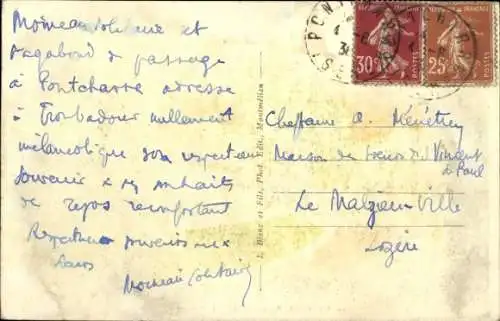 Moineau solitaire et
vagabond de passage
à Pontcharra adresse
à Troubadour nullement
mélancolique son respectueux
souvenir & ses souhaits
de repos réconfortant
Respectueux souvenirs aux
Moineau solitaire
J. Blanc et Fils, Phot. Edit., Montmélian
PONT
30c
POSTES
25c
POSTES
Cheftaine A. Ménétrey
Maison de Soeurs St Vincent
de Paul
Le Malzieu-Ville
Lozère